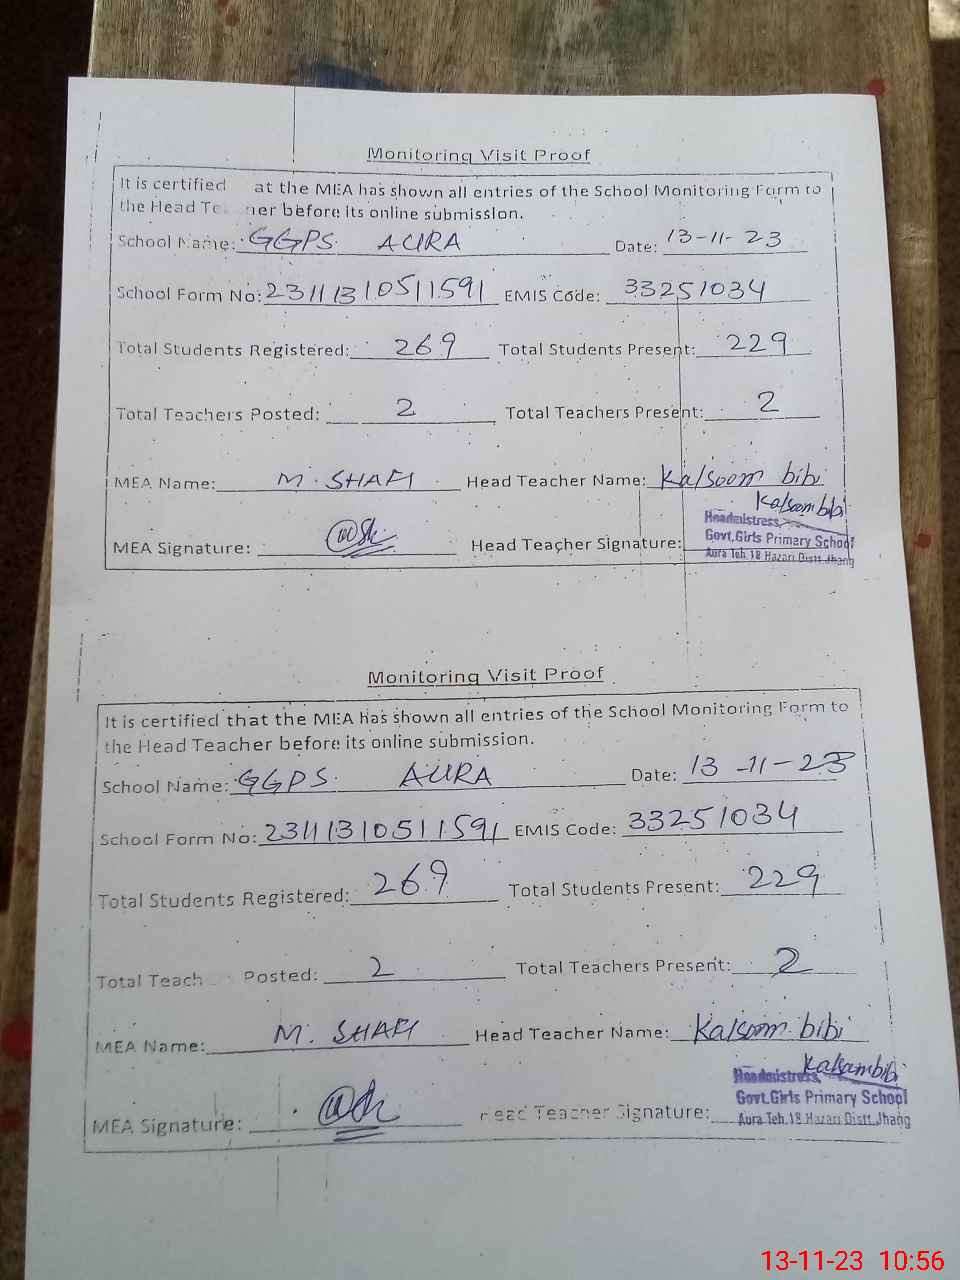 Monitoring Visit Proof
It is certified at the MEA has shown all entries of the School Monitoring Form to
the Head Te ner before its online submission.
School Name: GGPS AURA Date: 13-11-23
School Form No: 23111310511591 EMIS Code: 33251034
Total Students Registered: 269 Total Students Present: 229
Total Teachers Posted: 2 Total Teachers Present: 2
MEA Name: M. SHAFI Head Teacher Name: Kalsoom bibi
Kalsoom bibi
MEA Signature: Head Teacher Signature:
Headmistress,
Govt.Girls Primary School
Aura Teh.18 Hazari Distt.Jhang
Monitoring Visit Proof
It is certified that the MEA has shown all entries of the School Monitoring Form to
the Head Teacher before its online submission.
School Name: GGPS AURA Date: 13-11-23
School Form No: 23111310511591 EMIS Code: 33251034
Total Students Registered: 269 Total Students Present: 229
Total Teach Posted: 2 Total Teachers Present: 2
MEA Name: M. SHAFI Head Teacher Name: Kalsoom bibi
Kalsoom bibi
MEA Signature: ead Teacher Signature:
Headmistress,
Govt.Girls Primary School
Aura Teh.18 Hazari Distt.Jhang
13-11-23 10:56